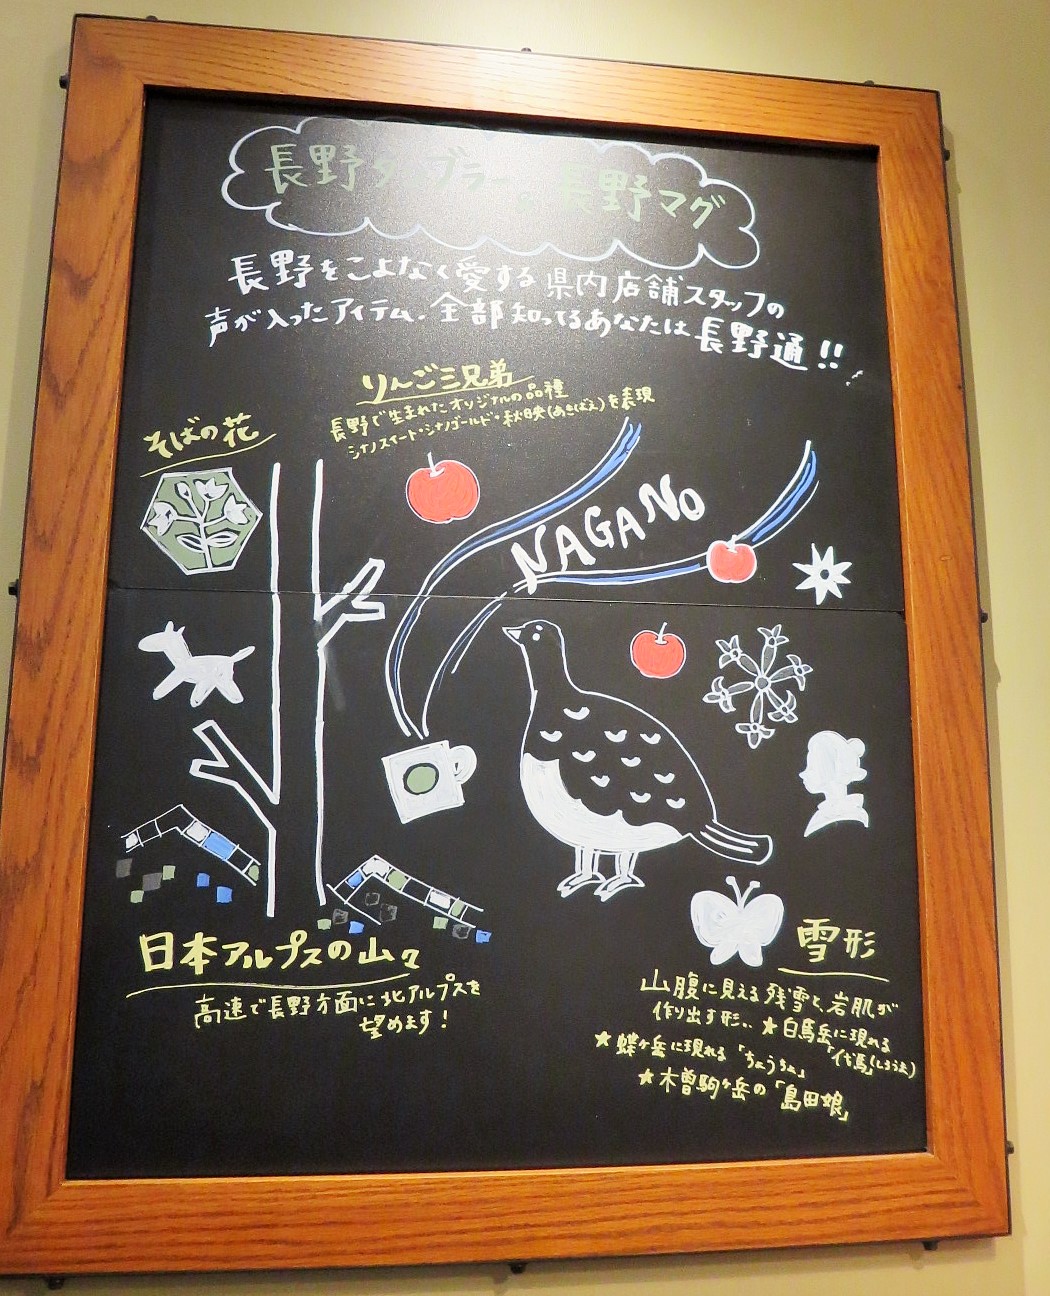 長野タンブラー。長野マグ
長野をこよなく愛する県内店舗スタッフの
声が入ったアイテム。全部知ってるあなたは長野通!!
りんご三兄弟
長野で生まれたオリジナルの品種
シナノスイート・シナノゴールド・秋映(あきばえ)を表現
そばの花
NAGANO
日本アルプスの山々
高速で長野方面に北アルプスを
望めます!
雪形
山腹に見える残雪と、岩肌が
作り出す形.. ★白馬岳に現れる
「代馬」(しろうま)
★蝶ヶ岳に現れる「ちょうちょ」
★木曽駒ヶ岳の「島田娘」